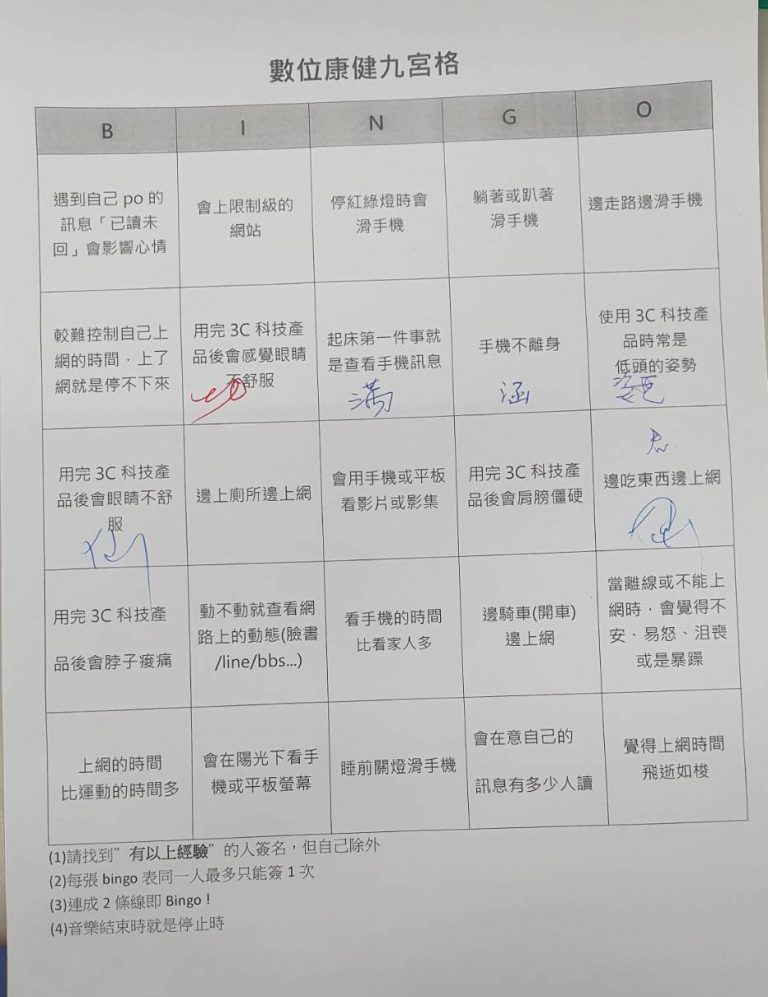 數位康健九宮格
B I N G O
遇到自己 po 的
訊息「已讀未
回」會影響心情
會上限制級的
網站
停紅綠燈時會
滑手機
躺著或趴著
滑手機
邊走路邊滑手機
較難控制自己上
網的時間，上了
網就是停不下來
用完 3C 科技產
品後會感覺眼睛
不舒服
起床第一件事就
是查看手機訊息
滿
手機不離身
涵
使用 3C 科技產
品時常是
低頭的姿勢
用完 3C 科技產
品後會眼睛不舒
服
邊上廁所邊上網
會用手機或平板
看影片或影集
用完 3C 科技產
品後會肩膀僵硬
邊吃東西邊上網
用完 3C 科技產
品後會脖子痠痛
動不動就查看網
路上的動態(臉書
/line/bbs...)
看手機的時間
比看家人多
邊騎車(開車)
邊上網
當離線或不能上
網時，會覺得不
安、易怒、沮喪
或是暴躁
上網的時間
比運動的時間多
會在陽光下看手
機或平板螢幕
睡前關燈滑手機
會在意自己的
訊息有多少人讀
覺得上網時間
飛逝如梭
(1)請找到”有以上經驗”的人簽名，但自己除外
(2)每張 bingo 表同一人最多只能簽 1 次
(3)連成 2 條線即 Bingo !
(4)音樂結束時就是停止時